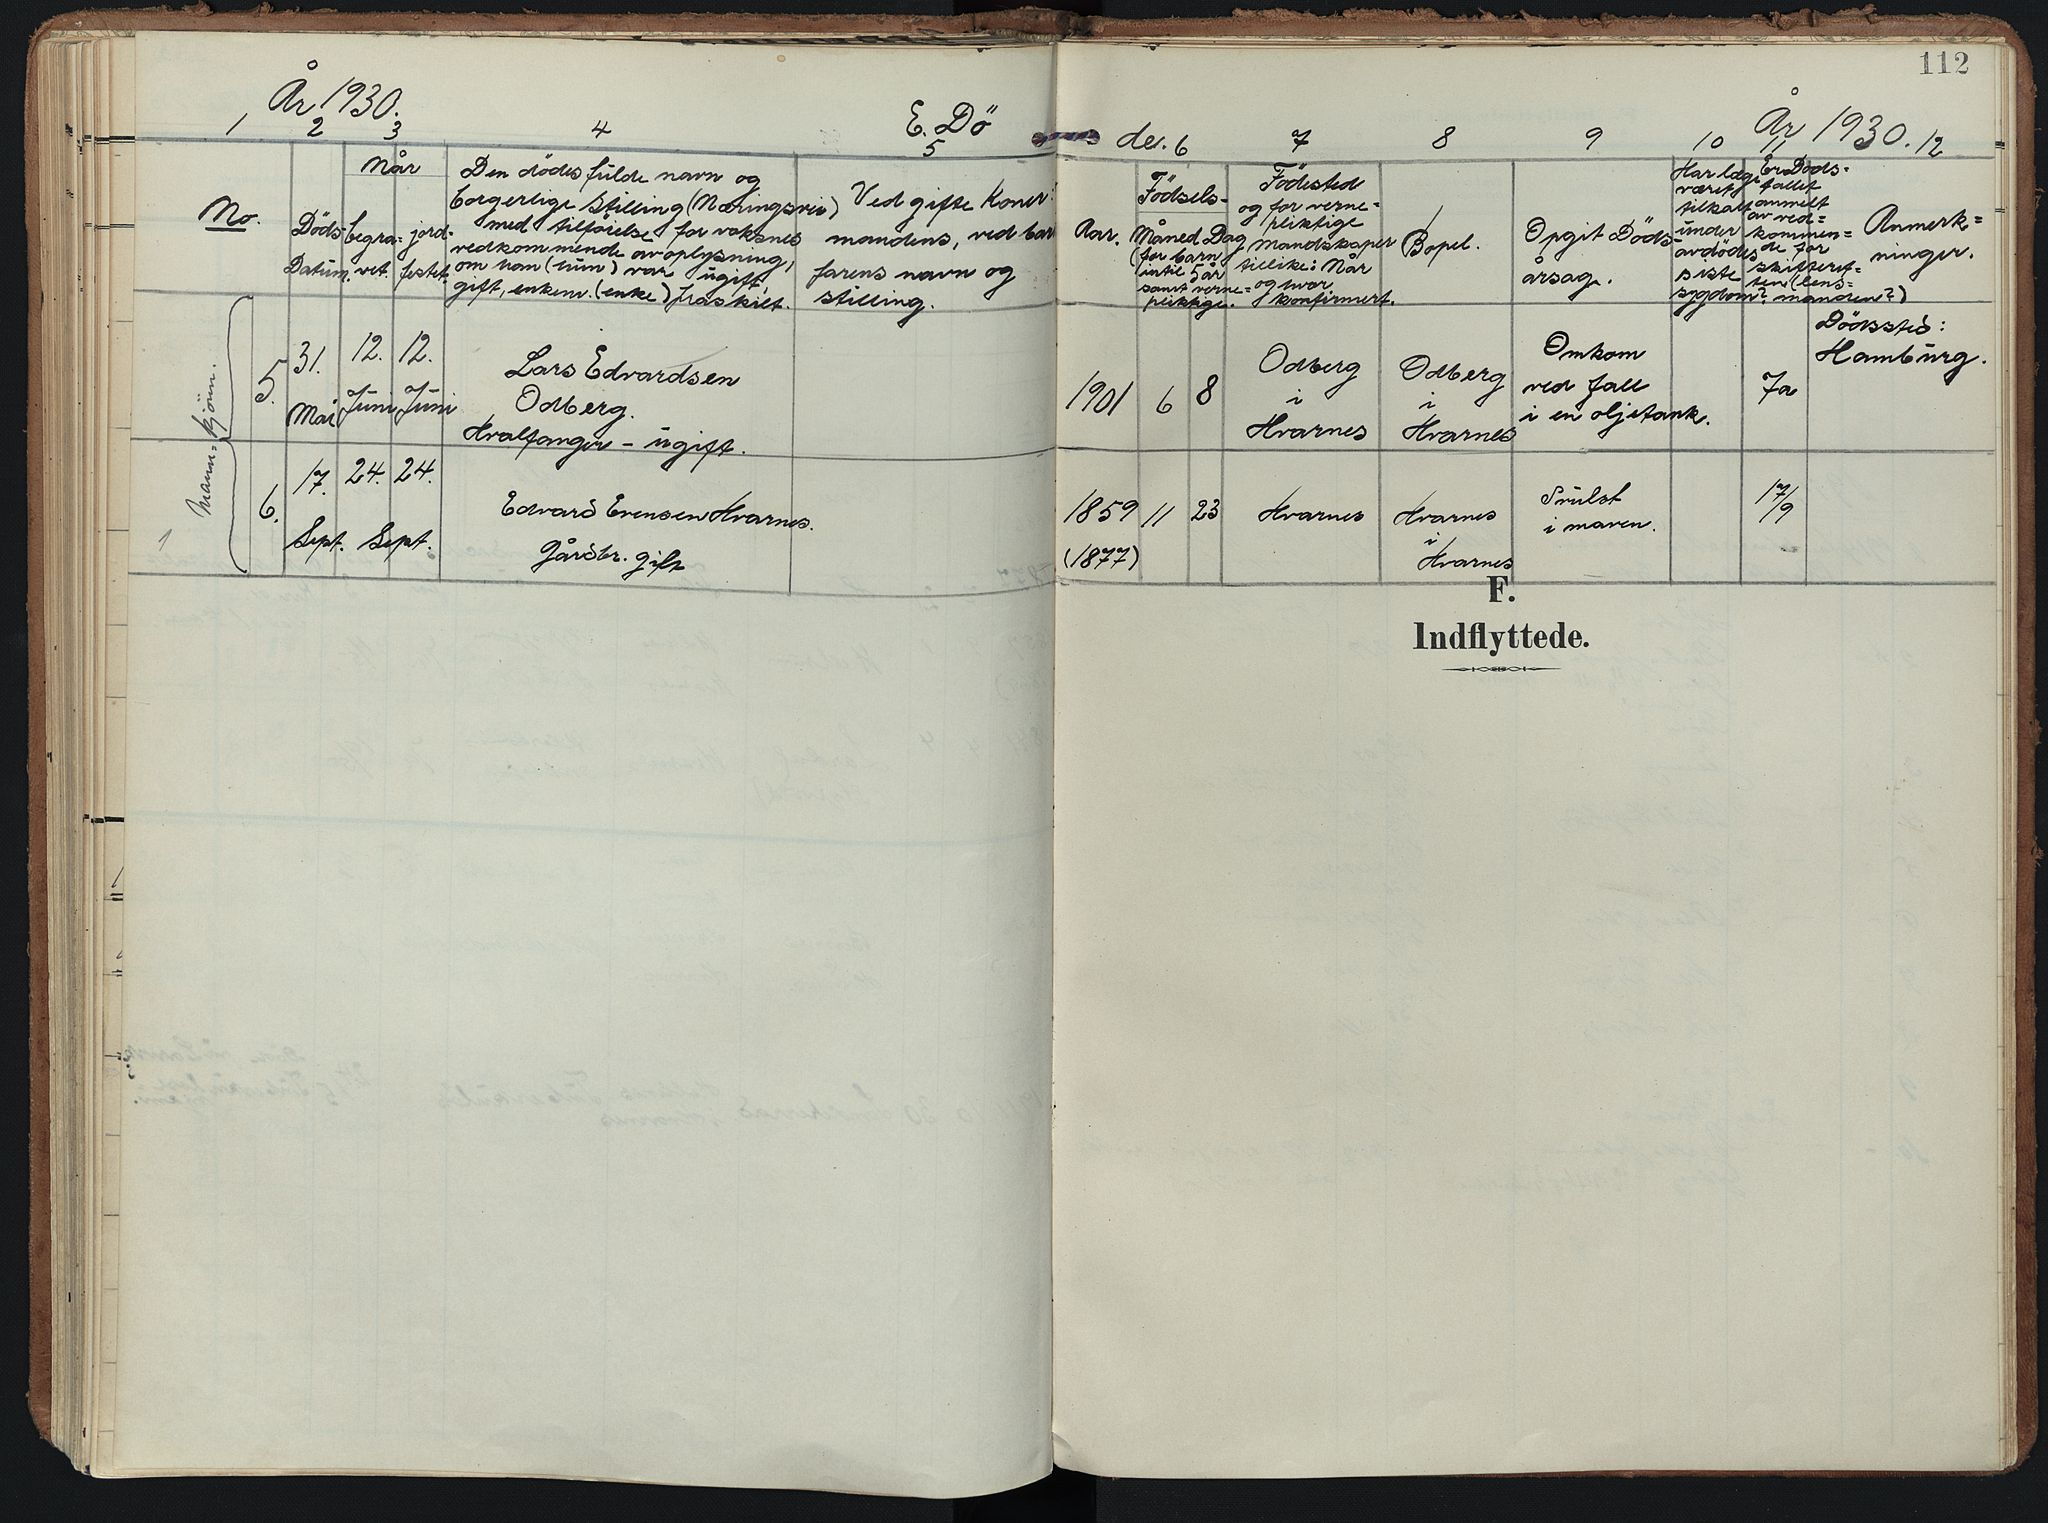 112
År 1930.
E. Dö
de.
År 1930.
1 2 3 4 5 6 7 8 9 10 11 12
No.
Döds-
Datum.
Når
begra-
vet.
jord-
festet.
Den dödes fulde navn og
borgerlige Stilling (Næringsvei)
med tilförelse for voksnes
vedkommende av oplysning,
om han (hun) var ugift,
gift, enkem. (enke) fraskilt.
Ved gifte Koner:
mandens, ved bar
farens navn og
stilling.
Aar.
Födsels-
Måned Dag
(for barn
intil 5 år
samt verne=
pliktige.
Födested
og for verne=
pliktige
mandskaper
tillike: Når
og hvor
konfirmert.
Bopel.
Opgit Döds-
årsag.
Har læge
været
tilkalt
under
avdödes
siste
sygdom?
Er Döds-
fallet
anmelt
av ved=
kommen=
de for
skifteret-
ten (lens-
manden?)
Anmerk=
ninger.
Mann=kjönn.
5.
31.
Mai
12.
Juni
12.
Juni
Lars Edvardsen
Odberg.
Hvalfanger - ugift.
1901
6
8
Odberg
i
Hvarnes
Odberg
i
Hvarnes
Omkom
ved fall
i en oljetank.
7a
Dödssted:
Hamburg.
6.
17.
Sept.
24.
24.
Sept.
Edvard Evensen Hvarnes.
Gårdbr. gift
1859
(1877)
11
23
Hvarnes
Hvarnes
i
Hvarnes
Svulst
i maven.
17/9
1
F.
Indflyttede.